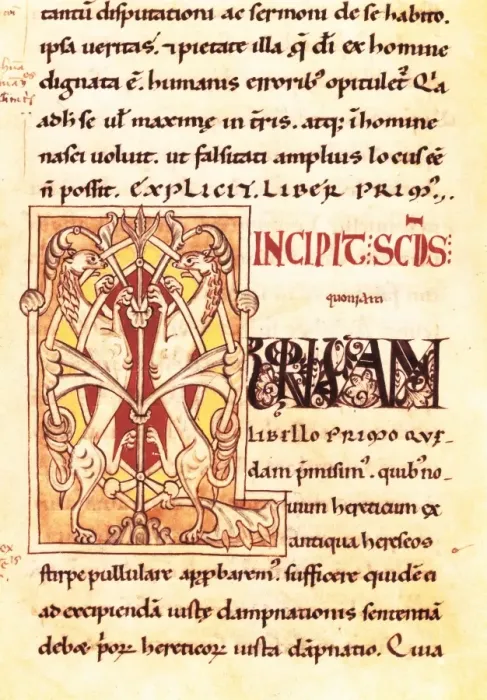 tantū disputationi ac sermoni de se habito.
ipsa veritas. ⁊ pietate illa q̄ dī ex homine
dignata ē. humanis erroribꝰ opituletᷣ. Q'a
adh' se ul' maxime in t̄ris. atq; ī homine
nasci uoluit. ut falsitati amplius locus eē
n̄ possit. EXPLICIT. LIBER PRIMꝰ.
INCIPIT: SCD̄S:
quoniam
QUONIAM
LIBELLO PRIMO QUE-
dam p̄misimꝰ. quibꝰ no-
uum hereticum ex
antiqua hereseos
stirpe pullulare app̱barem'. sufficere quidē ei
ad excipiendā iustę dampnationis sententiā
debꝫ p'oꝝ hereticoꝝ iusta dāpnatio. Quia